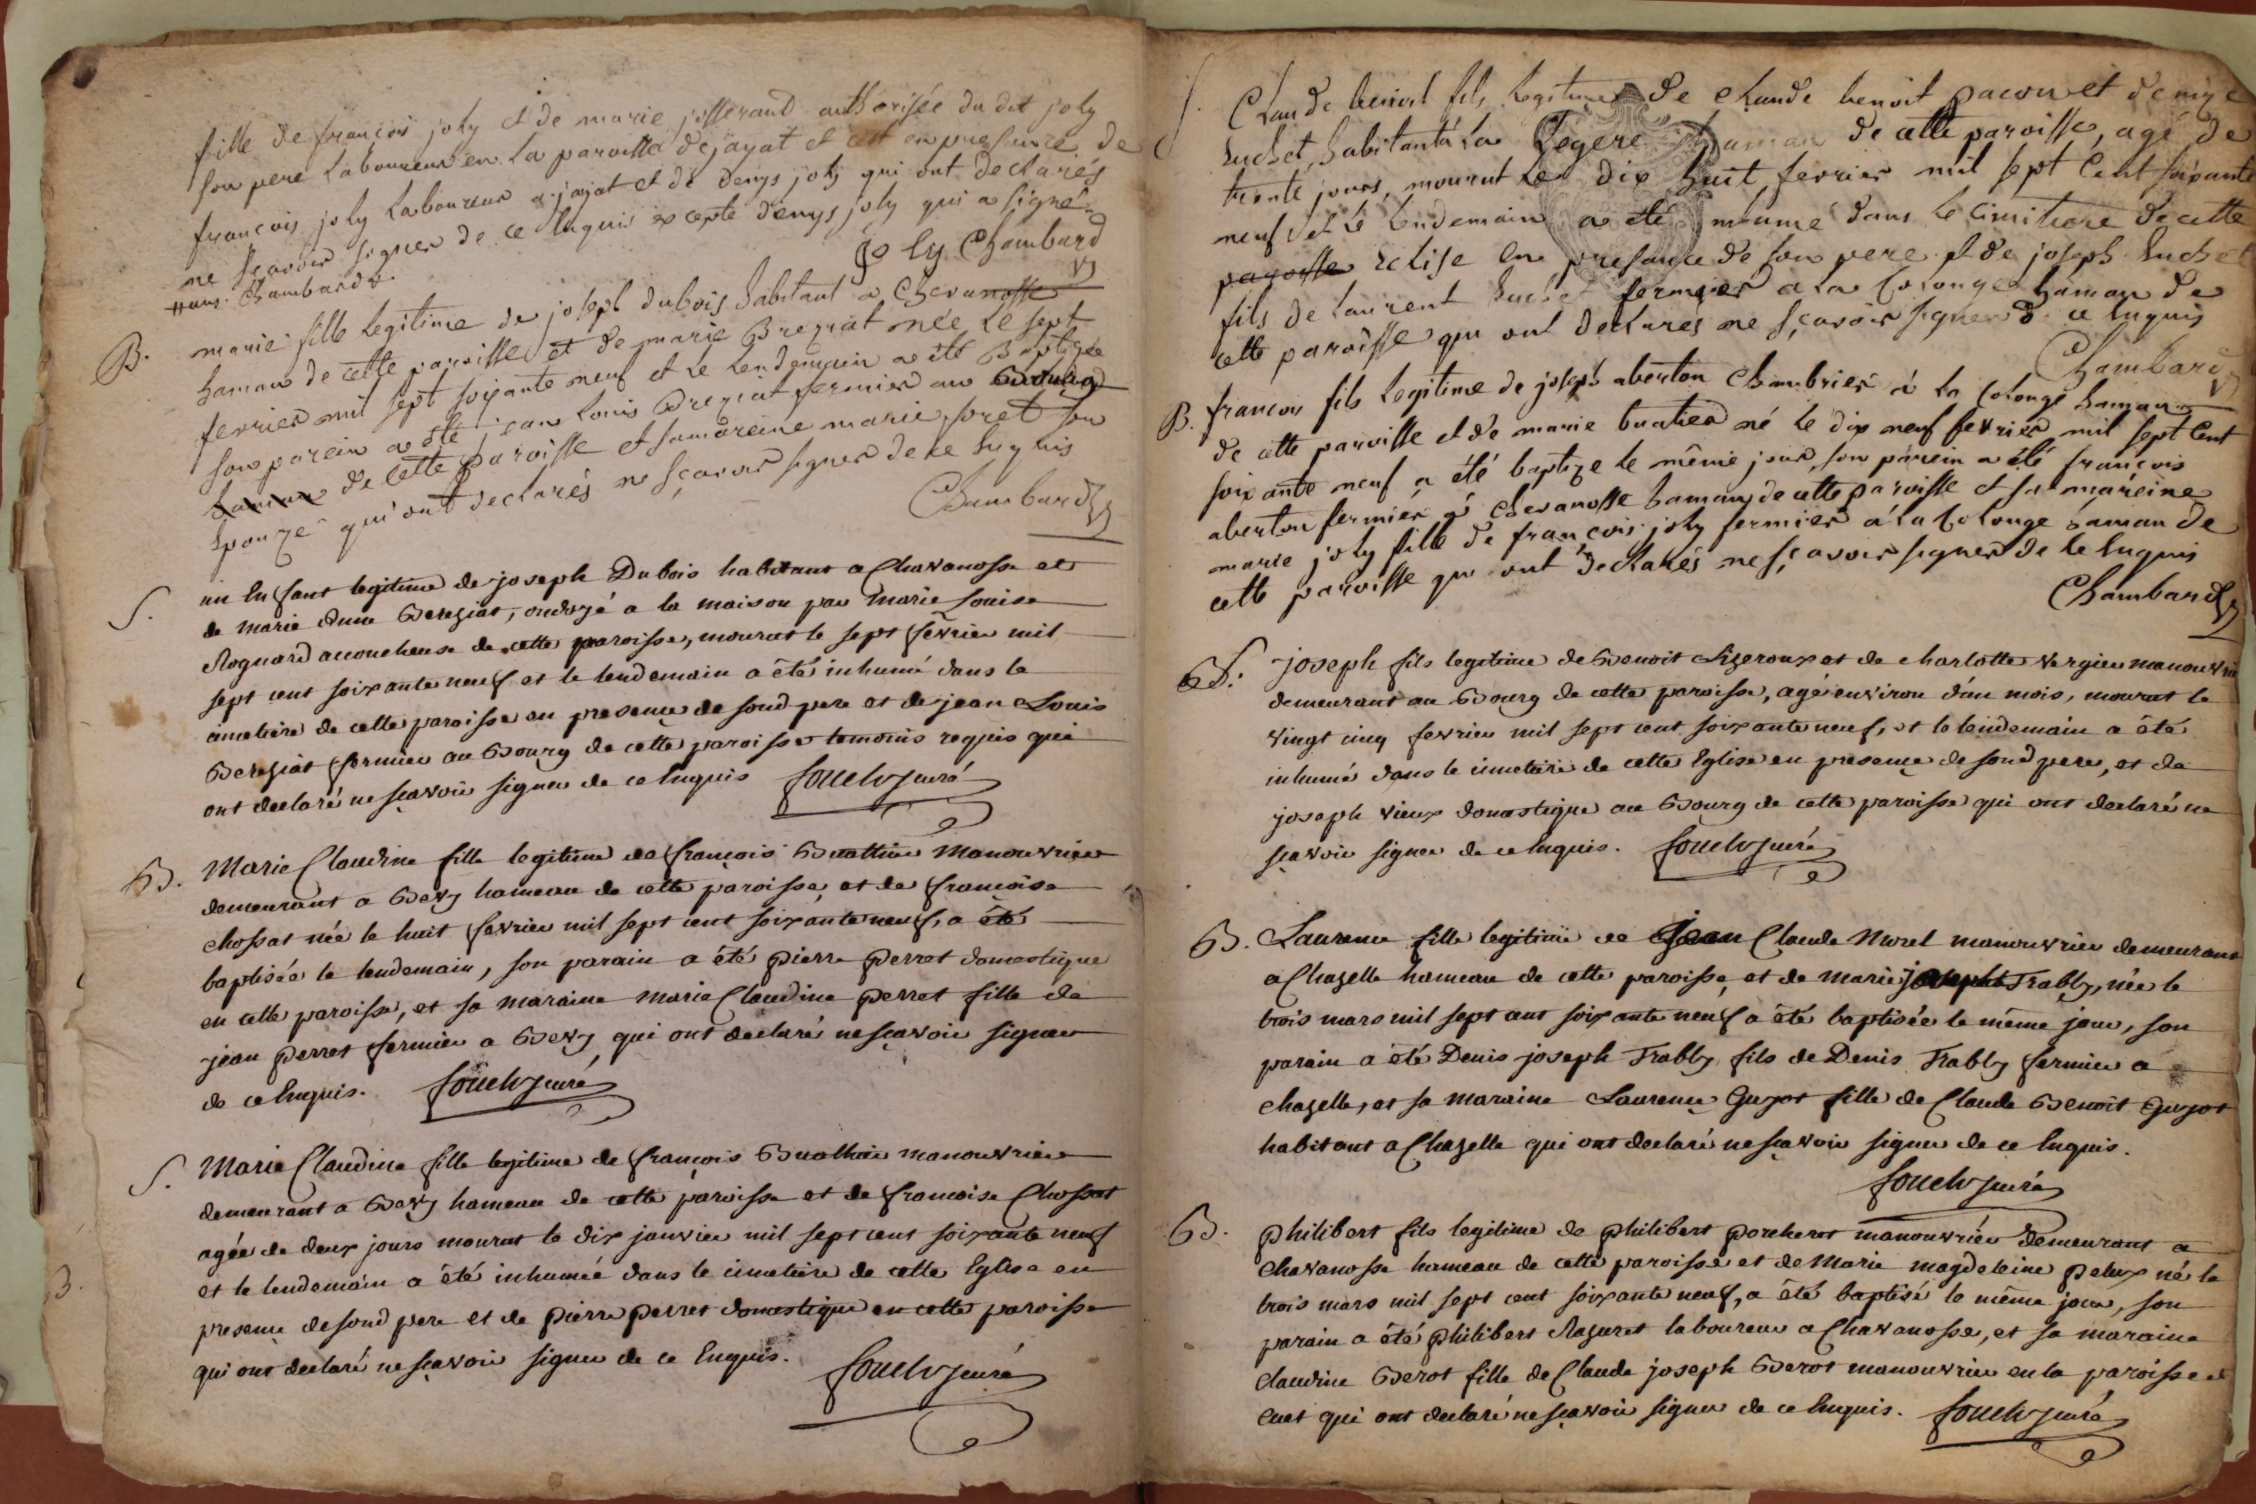 fille de françois joly et de marie josserand authorisée du dit joly
son pere laboureur en la paroisse dejayat et en presence de
françois joly laboureur a jayat et de denys joly qui ont declarés
ne sçavoir signer de ce enquis excepté denys joly qui a signé
Joly Chambard
Chambard
B. marie fille legitime de joseph dubois habitant a Chevanosse
hamau de cette paroisse et de marie Breziat née le sept
fevrier mil sept soixante neuf et le lendemain a été Baptizée
son parein a été jean louis Breziat fermier au Bourg
hamau de cette paroisse et samareine marie foret son
epouze qui ont declarés ne sçavoir signer de ce enquis
Chambard
S. un Enfant legitime de joseph Dubois habitant a Chavanosse et
de marie Anne Bereziat, ondoyé a la maison par Marie Louise
Rognard accoucheuse de cette paroisse, mourut le sept fevrier mil
sept cent soixante neuf et le lendemain a été inhumé dans le
cimetiere de cette paroisse en presence de sond pere et de jean Louis
Bereziat fermier au Bourg de cette paroisse temoins requis qui
ont declaré ne sçavoir signer de ce Enquis fouch curé
B. Marie Claudine fille legitime de françois Buathier Manouvrier
demeurant a Bevy hameau de cette paroisse et de françoise
chossat née le huit fevrier mil sept cent soixante neuf, a été
baptisée le lendemain, son parain a été pierre perret domestique
en cette paroisse, et sa maraine marie Claudine perret fille de
jean perret fermier a Bevy qui ont declaré ne sçavoir signer
de ce Enquis. fouch curé
S. Marie Claudine fille legitime de françois Buathier manouvrier
demeurant a Bevy hameau de cette paroisse et de françoise Chossat
agée de deux jours mourut le dix janvier mil sept cent soixante neuf
et le lendemain a été inhumée dans le cimetiere de cette Eglise en
presence de sond pere et de pierre perret domestique en cette paroisse
qui ont declaré ne sçavoir signer de ce Enquis. fouch curé
B.
S. Claude benoit fils legitime de claude benoit pacou et denize
luchet habitant à la legere hamau de cette paroisse, agé de
trente jours, mourut le dix huit fevrier mil sept Cent soixante
neuf et le lendemain a été inhumé dans le cimitiere de cette
paroisse eclise en presance de son pere et de joseph luchet
fils de laurent luchet fermier a la Colonge hamau de
cette paroisse qui ont declarés ne sçavoir signer de ce enquis
Chambard
B. françois fils legitime de joseph aberton Chambrier à la Colonge hamau
de cette paroisse et de marie buatier né le dix neuf fevrier mil sept Cent
soixante neuf a été baptize le même jour son parein a été françois
aberton fermier a Chevanosse hamau de cette paroisse et sa mareine
marie joly fille de françois joly fermier à la Colonge hamau de
cette paroisse qui ont declarés ne sçavoir signer de ce enquis
Chambard
S. joseph fils legitime de Benoit Lizeroux et de charlotte vergier manouvrier
demeurant au Bourg de cette paroisse, agé environ d'un mois, mourut le
vingt cinq fevrier mil sept cent soixante neuf, et le lendemain a été
inhumé dans le cimetiere de cette Eglise en presence de sond pere, et de
joseph vieux domestique au Bourg de cette paroisse qui ont declaré ne
sçavoir signer de ce Enquis. fouch curé
B. Laurence fille legitime de Jean Claude Morel manouvrier demeurant
a Chazelle hameau de cette paroisse, et de marie josephe Trably, née le
trois mars mil sept cent soixante neuf a été baptisée le même jour, son
parain a été Denis joseph Trably fils de Denis Trably fermier a
chazelle, et sa maraine Laurence Guyot fille de Claude Benoit Guyot
habitant a Chazelle qui ont declaré ne sçavoir signer de ce Enquis.
fouch curé
B. philibert fils legitime de philibert porcherot manouvrier demeurant a
Chavanosse hameau de cette paroisse et de Marie magdeleine pelux né le
trois mars mil sept cent soixante neuf, a été baptisé le même jour, son
parain a été philibert Razuret laboureur a Chavanosse, et sa maraine
claudine Berot fille de Claude joseph Berot manouvrier en la paroisse de
Cuet qui ont declaré ne sçavoir signer de ce Enquis. fouch curé